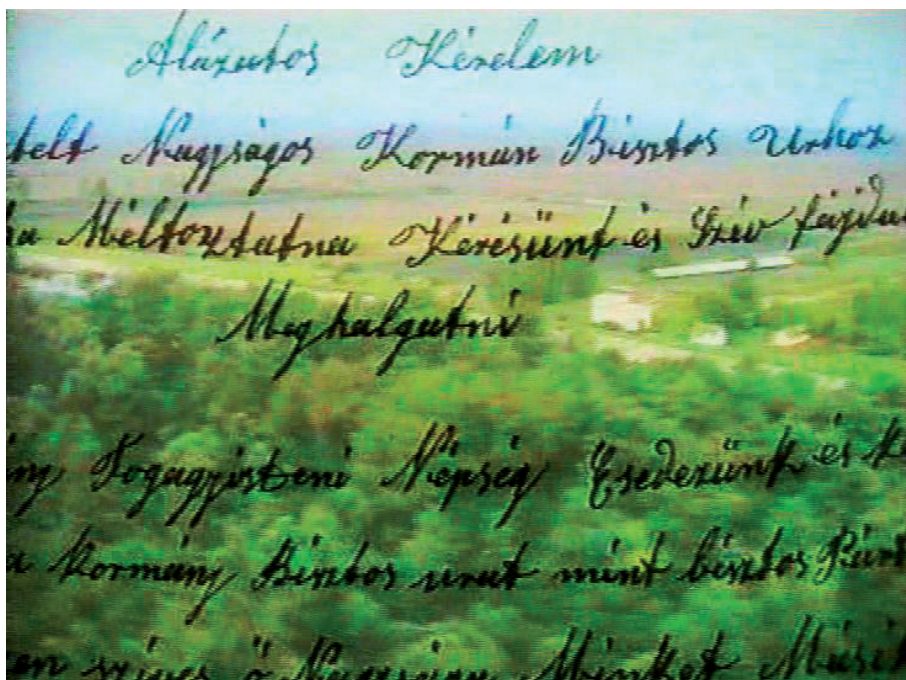 Alázatos Kérelem
telt Nagyságos Kormán Bisztos Urhoz
ha Méltoztatna Kérésünk és Sziv fájda
Meghalgatni
ny Népség Esedezünk és
a Kormány Bisztos urat mint bisztos
en szives ő Nagysága Minket